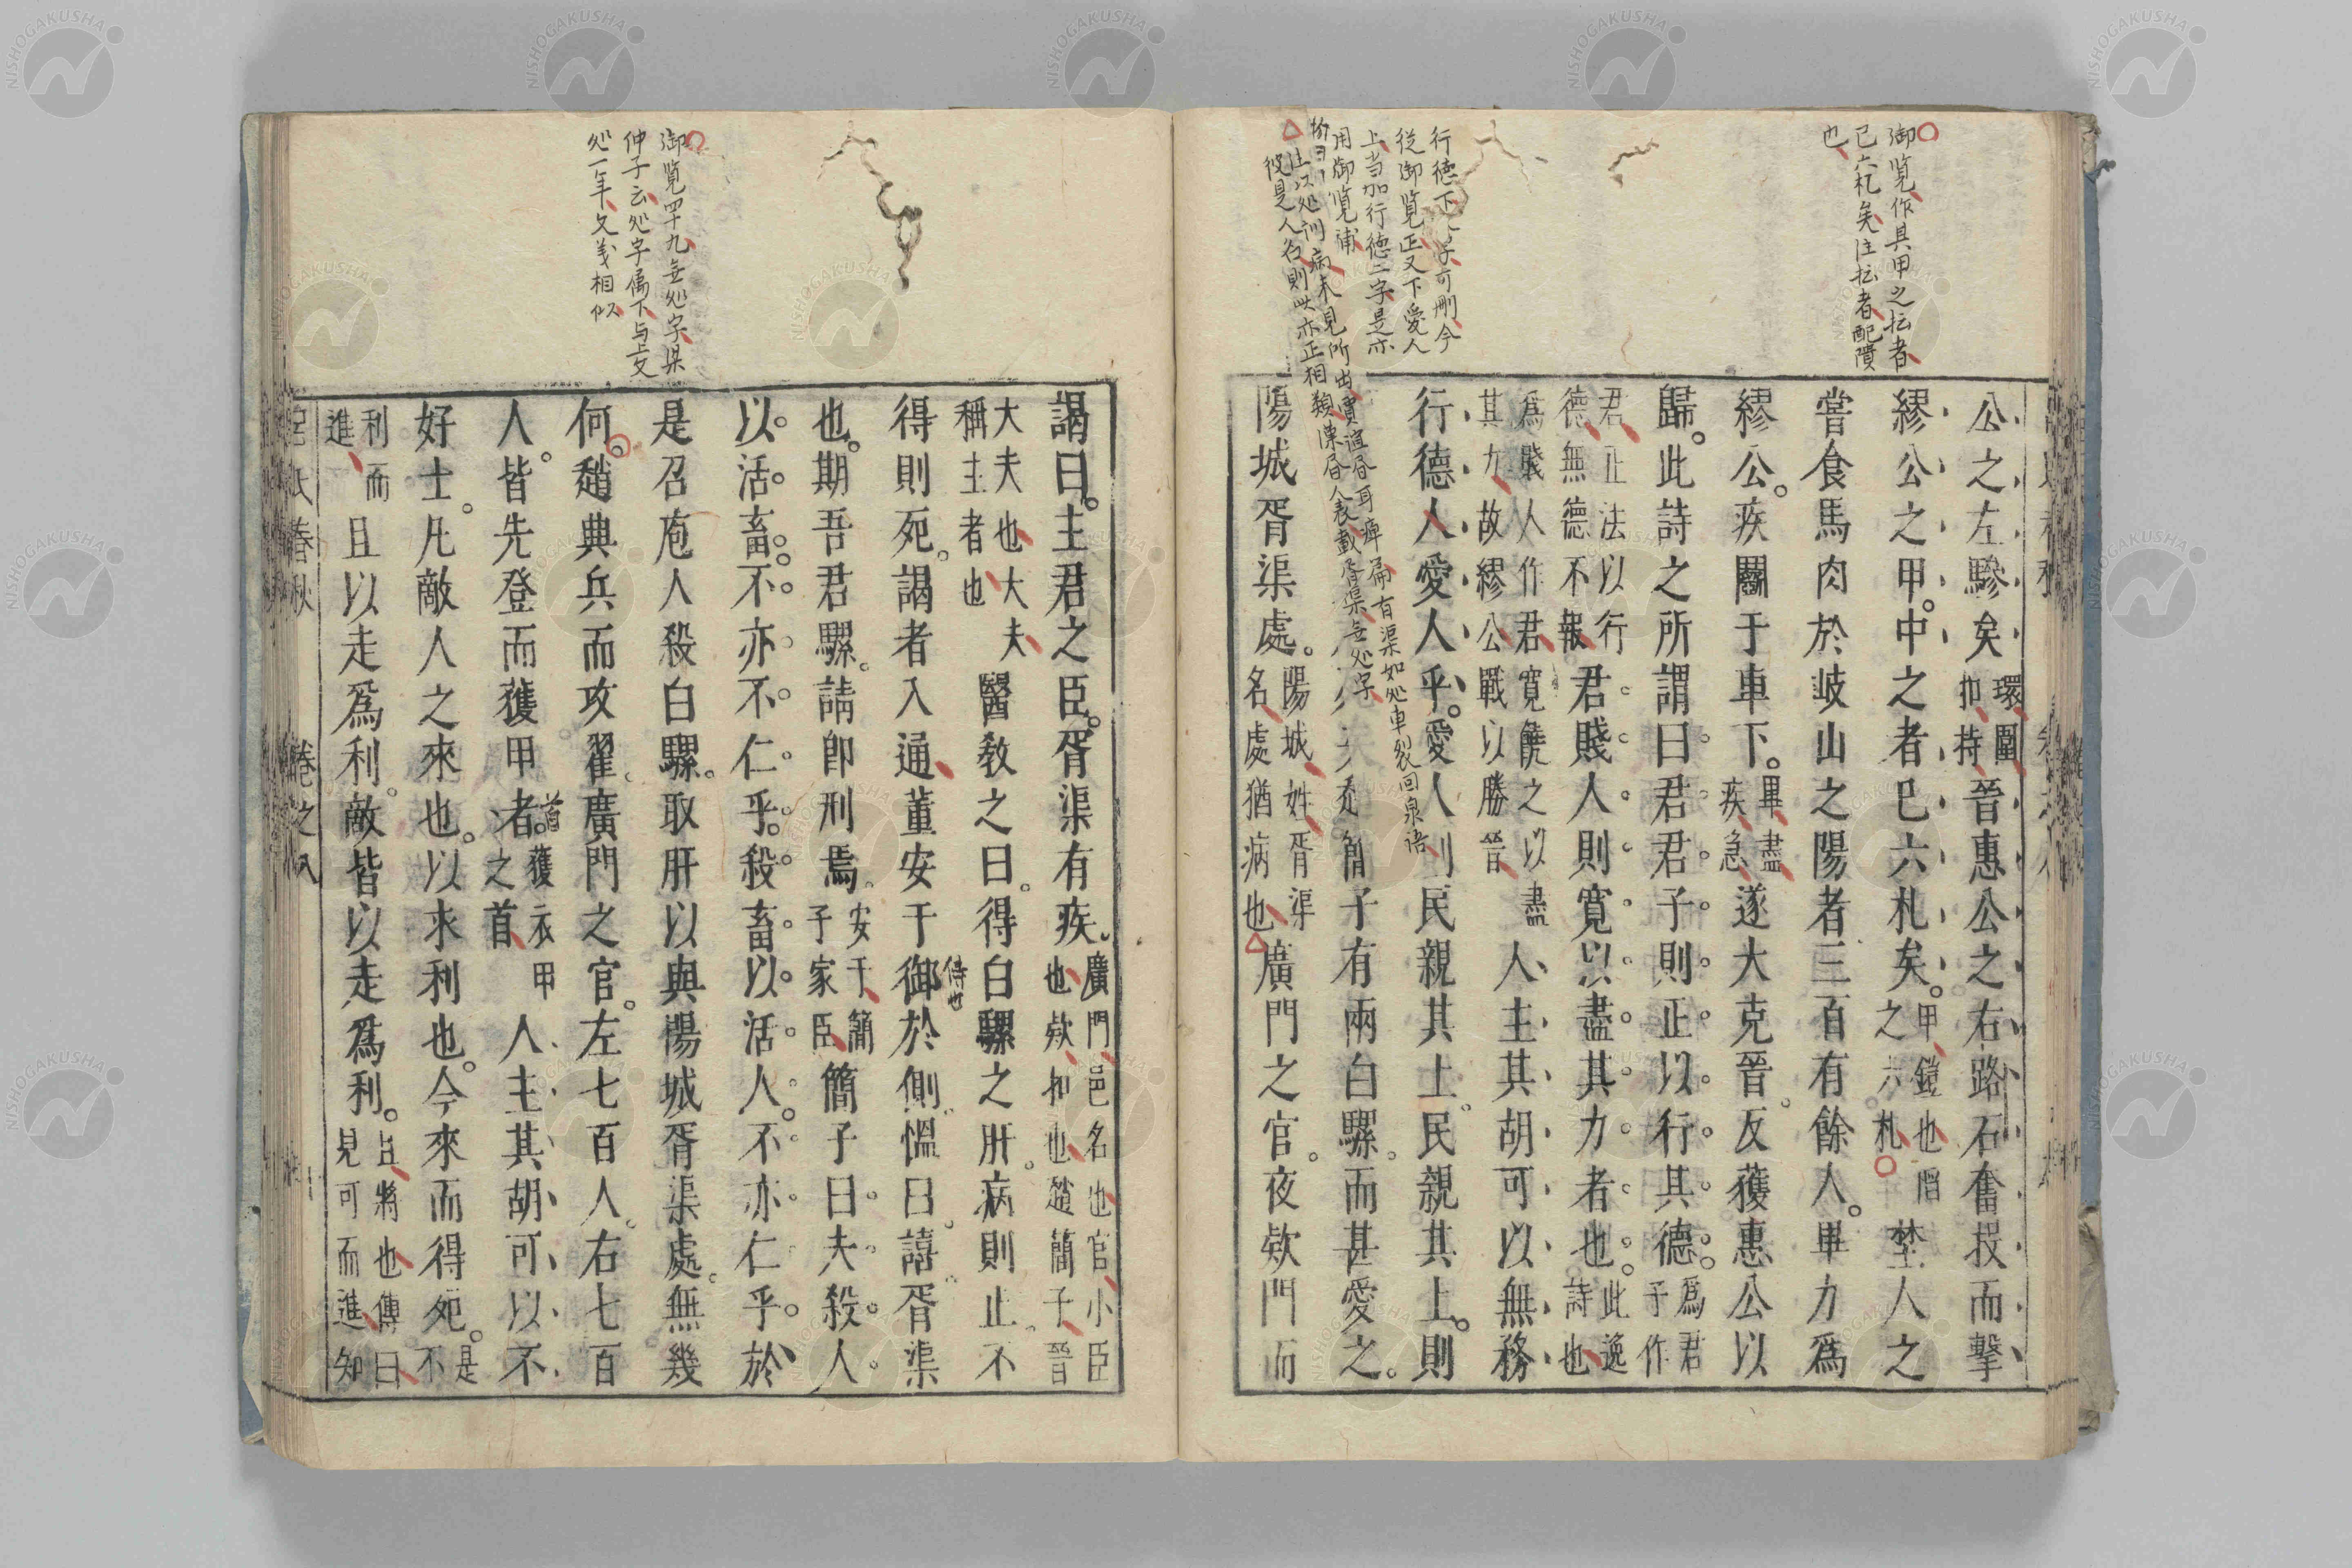 御覧作具甲之抎者
已六札矣注抎者配隕
也
行德下人字可刪今
從御覧正又下愛人
上当加行德二字是亦
用御覧補
公之左驂矣環圍
扣持晉惠公之右路石奮投而擊
繆公之甲中之者已六札矣甲鎧也陷
之六札埜人之
嘗食馬肉於岐山之陽者三百有餘人畢力爲
繆公疾鬭于車下畢盡
疾急遂大克晉反獲惠公以
歸此詩之所謂曰君君子則正以行其德爲君
子作
君正法以行
德無德不報君賤人則寛以盡其力者也此逸
詩也
爲賤人作君寛饒之以盡
其力故繆公戰以勝晉人主其胡可以無務
行德人愛人乎愛人則民親其上民親其上則
簡子有兩白騾而甚愛之
陽城胥渠處陽城姓胥渠
名處猶病也廣門之官夜欵門而
御覧四十九無処字梁
仲子云処字属下与上文
処一年文義相似
謁曰主君之臣胥渠有疾廣門邑名也官小臣
也欵扣也趙簡子晉
大夫也大夫
稱主者也醫敎之曰得白騾之肝病則止不
得則死謁者入通董安于御於側慍曰譆胥渠
侍也
也期吾君騾請卽刑焉安于簡
子家臣簡子曰夫殺人
以活畜不亦不仁乎殺畜以活人不亦仁乎於
是召庖人殺白騾取肝以與陽城胥渠處無幾
何趙興兵而攻翟廣門之官左七百人右七百
人皆先登而獲甲者獲衣甲
之首人主其胡可以不
首
好士凡敵人之來也以求利也今來而得死是
不
利而
進且以走爲利敵皆以走爲利且將也傳曰
見可而進知
呂氏春秋 卷之八